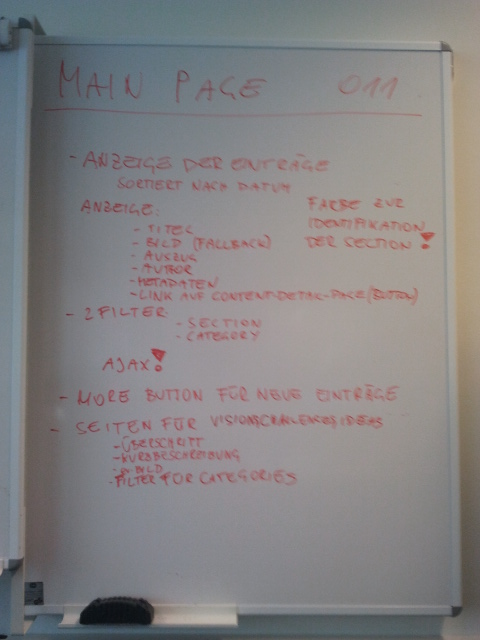 MAIN PAGE 011
- ANZEIGE DER EINTRÄGE
SORTIERT NACH DATUM
ANZEIGE:
- TITEL
- BILD (FALLBACK)
- AUSZUG
- AUTHOR
- METADATEN
- LINK AUF CONTENT-DETAIL-PAGE (BUTTON)
FARBE ZUR
IDENTIFIKATION
DER SECTION!
- 2 FILTER
- SECTION
- CATEGORY
AJAX!
- MORE BUTTON FÜR NEUE EINTRÄGE
- SEITEN FÜR VISIONS CHALLENGES IDEAS
- ÜBERSCHRIFT
- KURZBESCHREIBUNG
- BILD
- FILTER FOR CATEGORIES